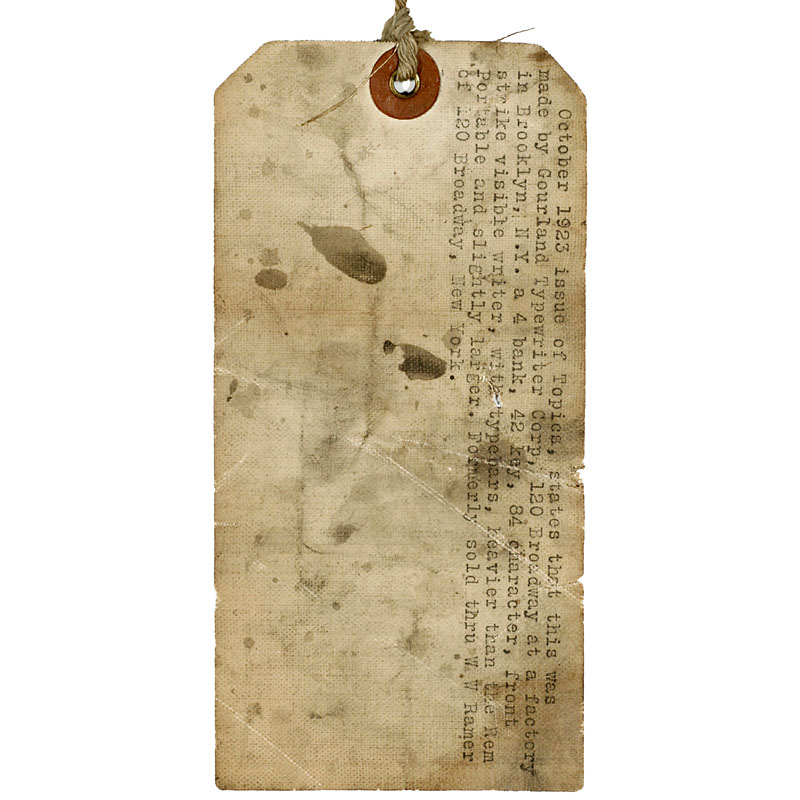 October 1923 issue of Topics, states that this was
made by Gourland Typewriter Corp, 120 Broadway at a factory
in Brooklyn, N.Y. a 4 bank, 42 key, 84 character, front
strike visible writer, with typebars, heavier than the Rem
Portable and slightly larger. Formerly sold thru W.W Ramer
of 120 Broadway, New York.